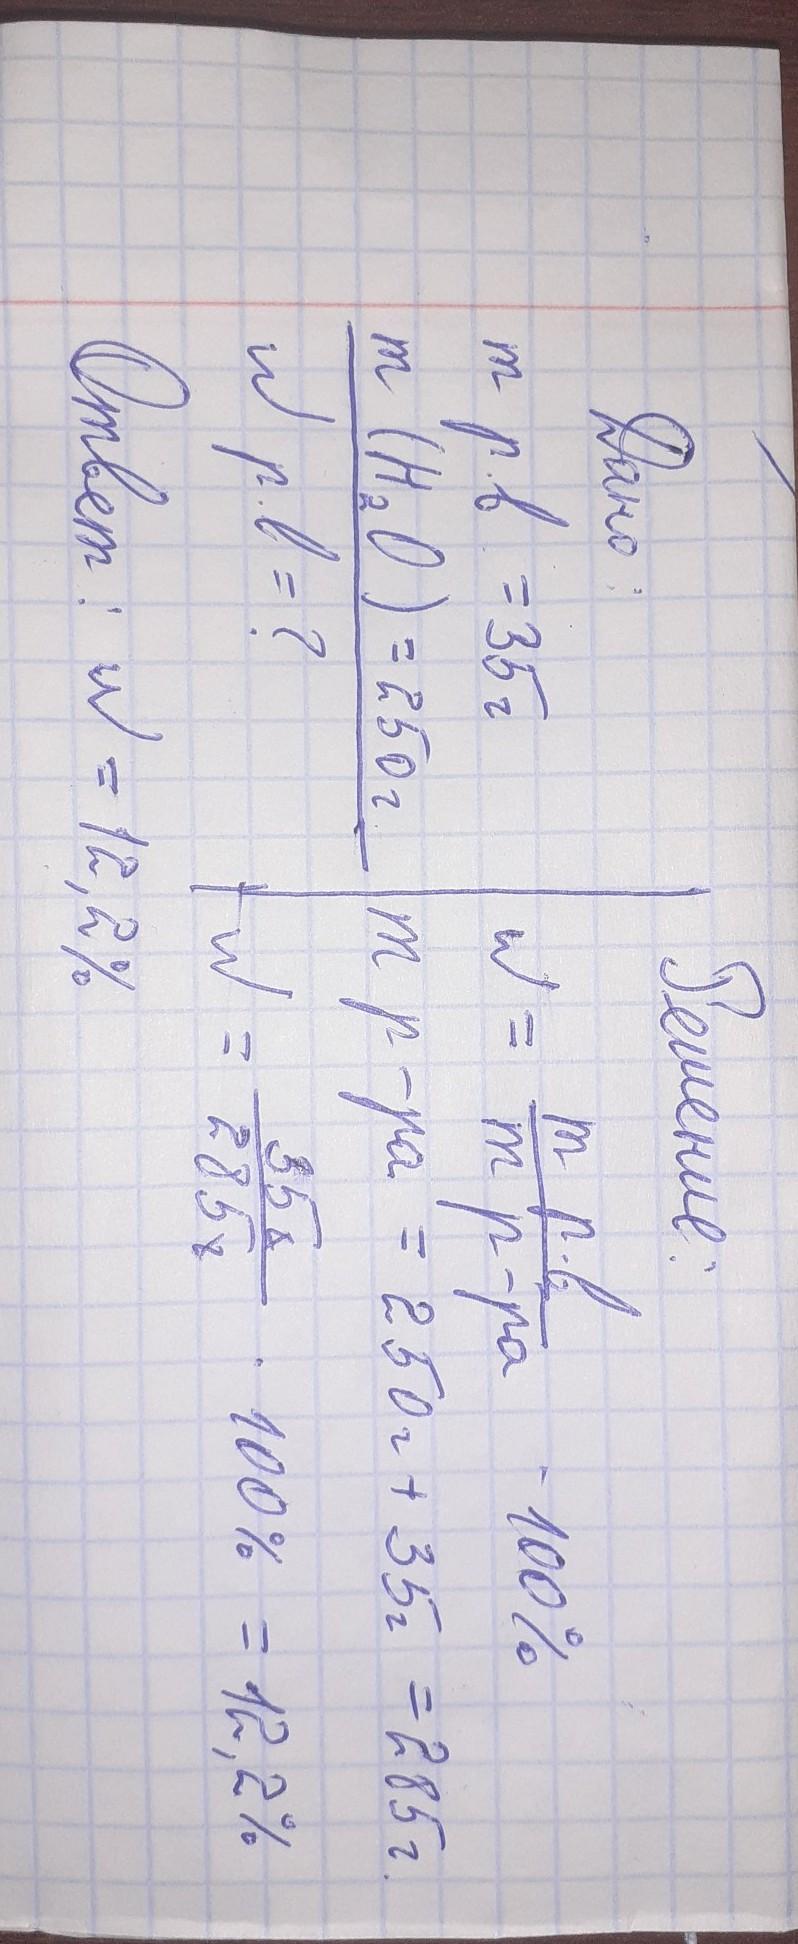 Дано:
m р.в = 35г
m (H₂O) = 250г.
w р.в = ?
Решение:
w = m р.в / m р-ра · 100%
m р-ра = 250г + 35г = 285г.
w = 35г / 285г · 100% = 12,2%
Ответ: w = 12,2%